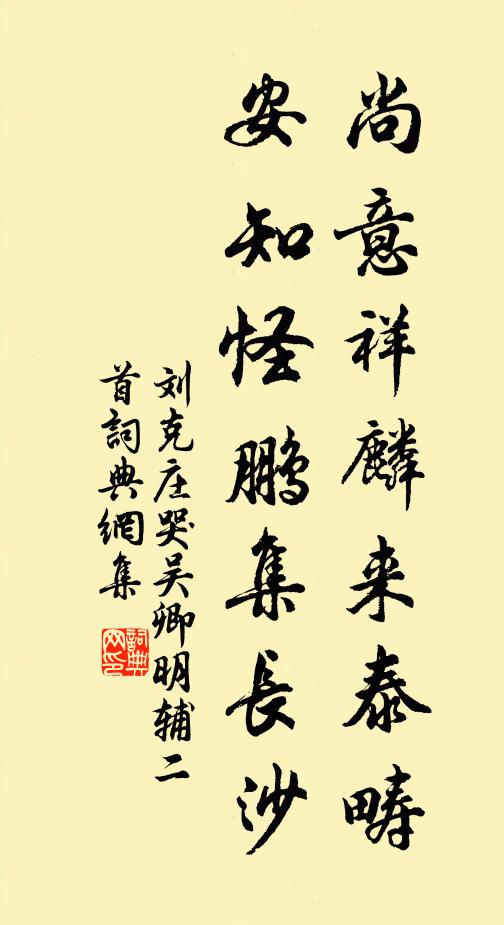 尚意祥麟来泰畤
安知怪鹏集長沙
刘克庄哭吴卿明辅二
首詞典網集
詞典
网印